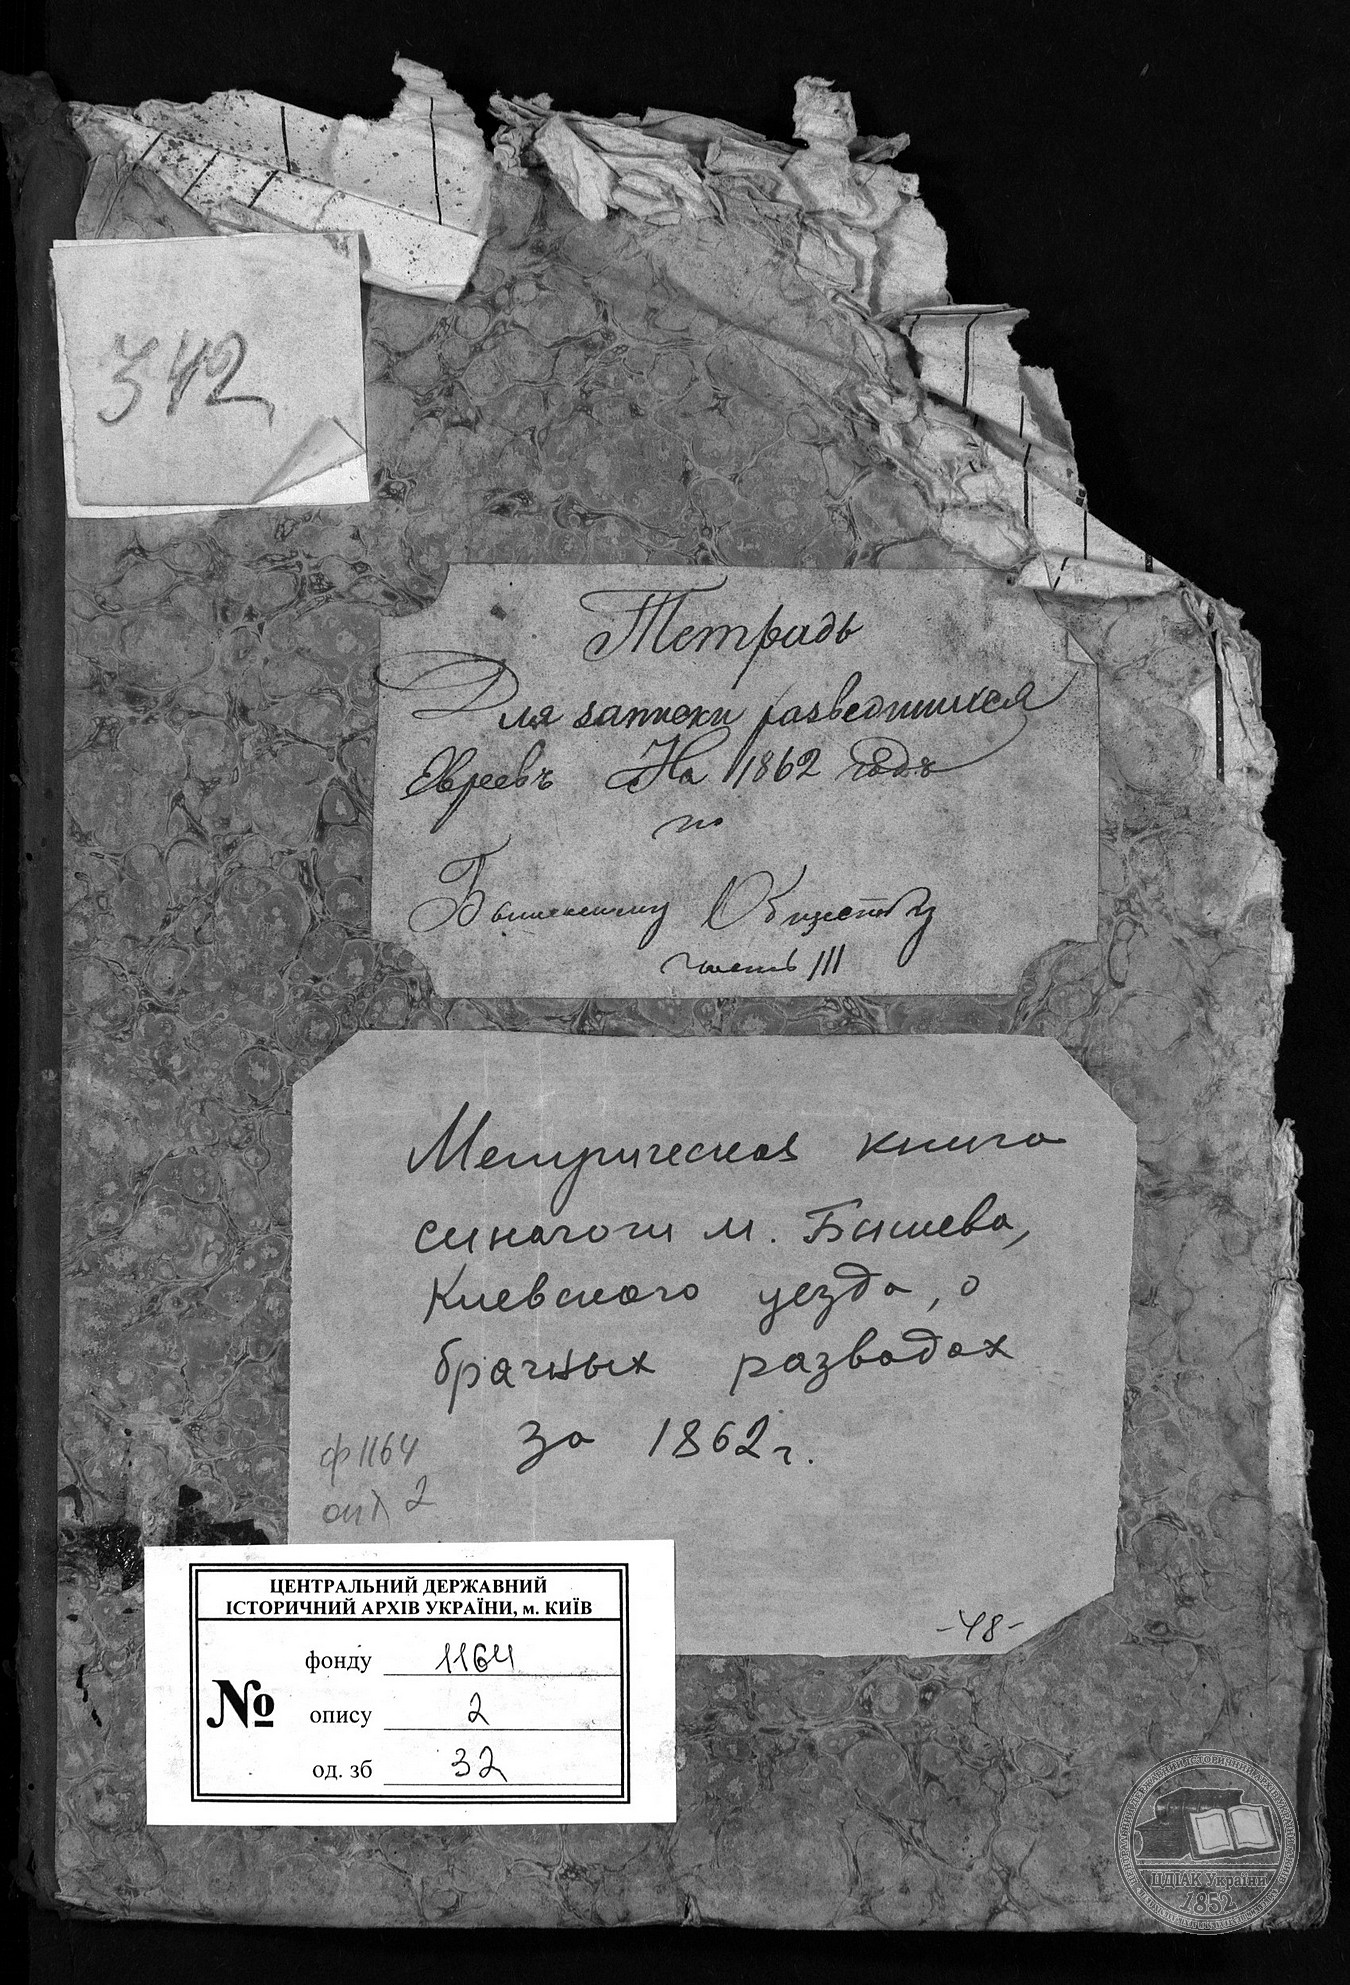 342
Тетрадь
Для записки разведшихся
Евреевъ На 1862 годъ
по
Бышевскому Обществу
часть III
Метрическая книга
синагоги м. Бышева,
Киевского уезда, о
брачных разводах
за 1862 г.
ф 1164
оп 2
-48-
ЦЕНТРАЛЬНИЙ ДЕРЖАВНИЙ
ІСТОРИЧНИЙ АРХІВ УКРАЇНИ, м. КИЇВ
№
фонду 1164
опису 2
од. зб 32
ЦДІАК України
1852